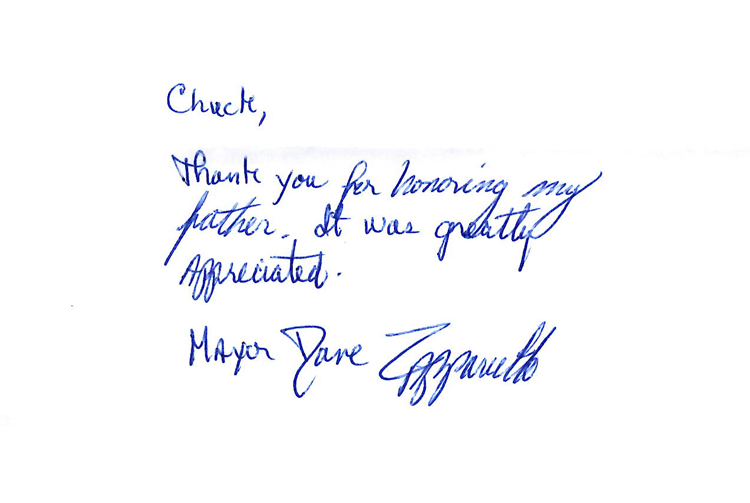 Chuck,
Thank you for honoring my
father. It was greatly
appreciated.
Mayor Dave